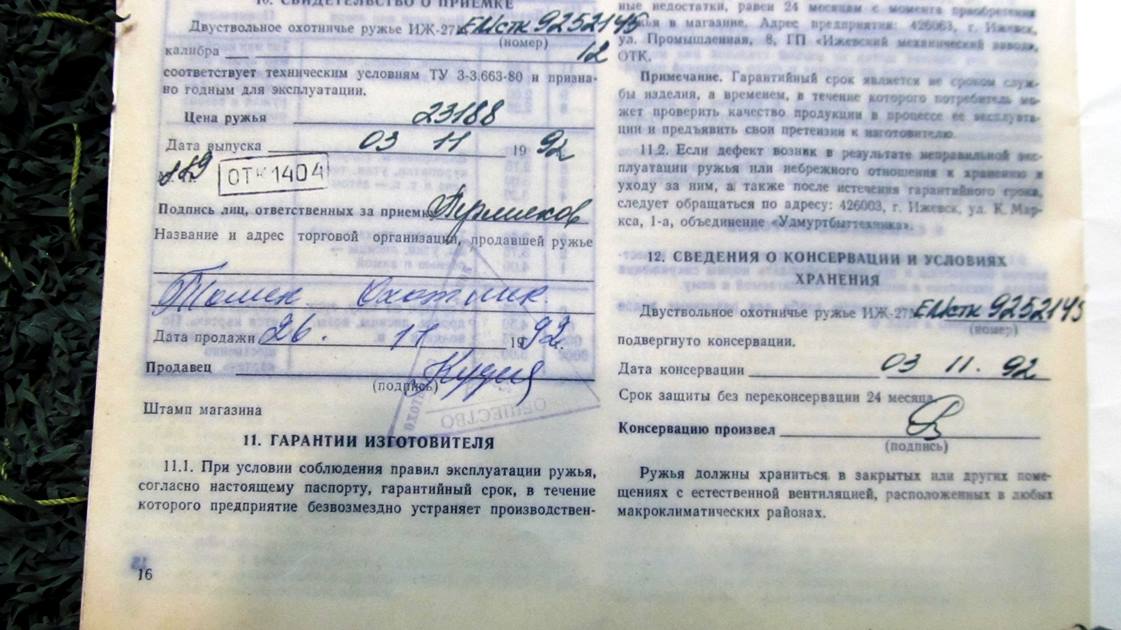 10. СВИДЕТЕЛЬСТВО О ПРИЕМКЕ
Двуствольное охотничье ружье ИЖ-27 9252145
(номер)
калибра 12
соответствует техническим условиям ТУ 3-3.663-80 и призна-
но годным для эксплуатации.
Цена ружья 23188
Дата выпуска 03 11 1992
ОТК 1404
Подпись лиц, ответственных за приемку
Название и адрес торговой организации, продавшей ружье
Охотник
Дата продажи 26. 11 1992.
Продавец
(подпись)
Штамп магазина
ОБЩЕСТВО
11. ГАРАНТИИ ИЗГОТОВИТЕЛЯ
11.1. При условии соблюдения правил эксплуатации ружья,
согласно настоящему паспорту, гарантийный срок, в течение
которого предприятие безвозмездно устраняет производствен-
16
ные недостатки, равен 24 месяцам с момента приобретения
ружья в магазине. Адрес предприятия: 426063, г. Ижевск,
ул. Промышленная, 8, ГП «Ижевский механический завод»,
ОТК.
Примечание. Гарантийный срок является не сроком служ-
бы изделия, а временем, в течение которого потребитель мо-
жет проверить качество продукции в процессе ее эксплуата-
ции и предъявить свои претензии к изготовителю.
11.2. Если дефект возник в результате неправильной экс-
плуатации ружья или небрежного отношения к хранению и
уходу за ним, а также после истечения гарантийного срока,
следует обращаться по адресу: 426003, г. Ижевск, ул. К. Мар-
кса, 1-а, объединение «Удмуртбыттехника».
12. СВЕДЕНИЯ О КОНСЕРВАЦИИ И УСЛОВИЯХ
ХРАНЕНИЯ
Двуствольное охотничье ружье ИЖ-27 9252145
(номер)
подвергнуто консервации.
Дата консервации 03 11. 92
Срок защиты без переконсервации 24 месяца.
Консервацию произвел
(подпись)
Ружья должны храниться в закрытых или других поме-
щениях с естественной вентиляцией, расположенных в любых
макроклиматических районах.